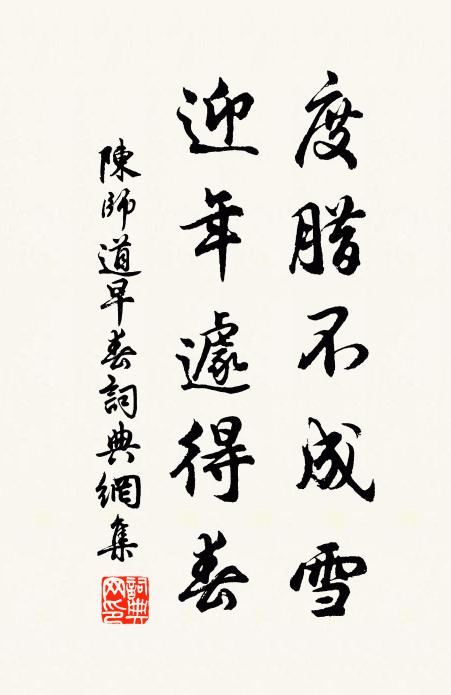 度腊不成雪
迎年遽得春
陳師道早春詞典網集
詞典网印